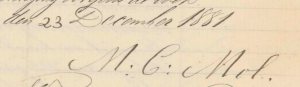 den 23 December 1881
M: C: Mol.